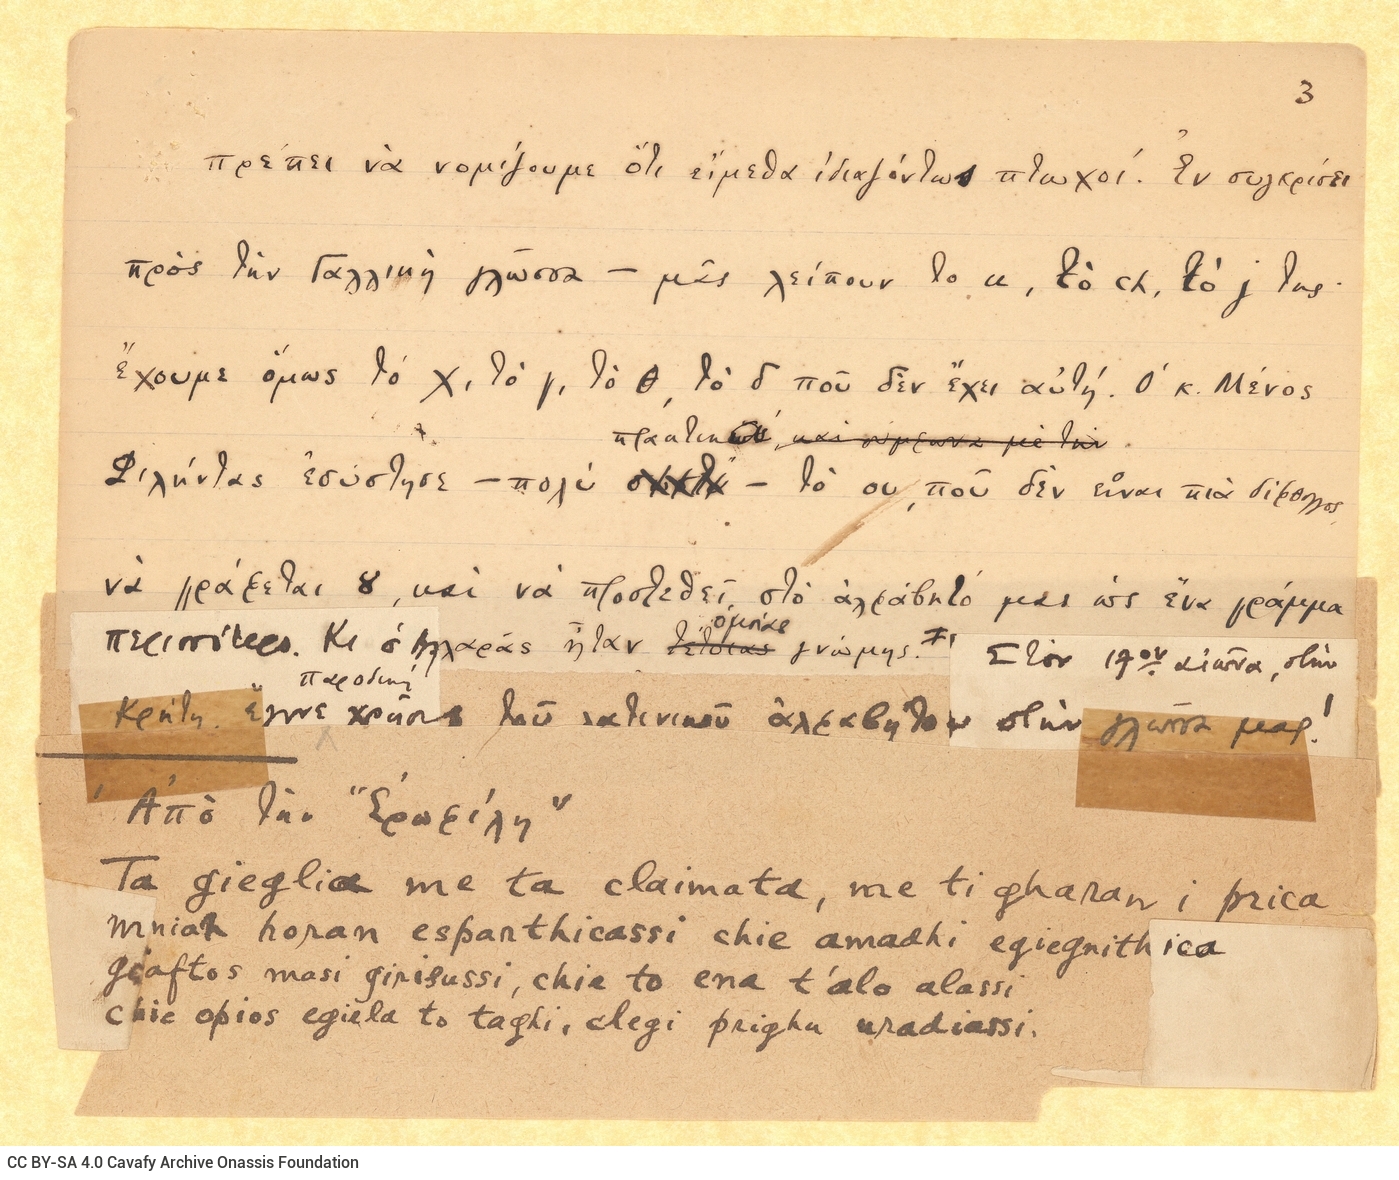 3
πρέπει νὰ νομίζουμε ὅτι εἴμεθα ἰδιαζόντως πτωχοί. Ἐν συγκρίσει
πρὸς τὴν Γαλλικὴ γλῶσσα — μᾶς λείπουν το u, τὸ ch, τὸ j της·
ἔχουμε ὅμως τὸ χ, τὸ γ, τὸ θ, τὸ δ ποῦ δὲν ἔχει αὐτή. Ὁ κ. Μένος
πρακτικά, καὶ σύμφωνα μὲ τὴν
Φιλήντας ἐσύστησε — πολύ — τὸ ου, ποῦ δὲν εἶναι πιὰ δίφθογγος,
νὰ γράφεται ȣ, καὶ νὰ προστεθεῖ στὸ ἀλφάβητό μας ὡς ἕνα γράμμα
ὁμοίας
περισσότερο. Κι ὁ Ψυχάρης ἦταν τέτοιας γνώμης. Στὸν 17ον αἰῶνα, στὴν
παροδικὴ
Κρήτη, ἔγινε χρῆσις τοῦ λατινικοῦ ἀλφαβήτου στὴν γλῶσσα μας!
Ἀπὸ τὴν "Ἐρωφίλη"
Ta gieglia me ta claimata, me ti gharan i prica
mniah horan esparthicassi chie amadhi egiegnithica
giaftos masi girisussi, chie to ena t'alo alassi
chie opios egiela to taghi, clegi prighu uradiassi.
CC BY-SA 4.0 Cavafy Archive Onassis Foundation